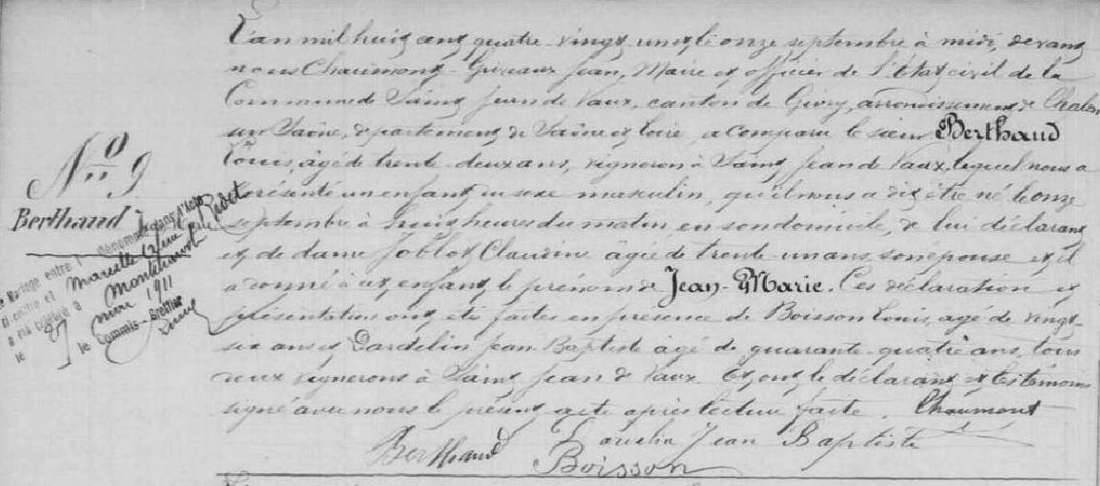 L'an mil huit cent quatre-vingt-un et le onze septembre à midi, devant
nous Chaumont-Griveaux Jean, Maire et officier de l'Etat civil de la
Commune de Saint Jean de Vaux, canton de Givry, arrondissement de Chalon
sur Saône, département de Saône et Loire, a comparu le sieur Berthaud
Louis, âgé de trente-deux ans, vigneron à Saint Jean de Vaux, lequel nous a
présenté un enfant du sexe masculin, qu'il nous a dit être né le onze
septembre à huit heures du matin en son domicile, de lui déclarant
et de dame Joblot Claudine âgée de trente-un ans, son épouse et il
a donné à cet enfant le prénom de Jean-Marie. Ces déclaration et
présentation ont été faites en présence de Boisson Louis, âgé de vingt-
six ans et Dardelin Jean Baptiste âgé de quarante-quatre ans, tous
deux vignerons à Saint Jean de Vaux. Et ont le déclarant et les témoins
signé avec nous le présent acte après lecture faite. Chaumont
Berthaud
Jean Baptiste
Boisson
N° 9
Berthaud
Mariage entre l dénommé dans l'acte
ci contre et Marcelle
a été célébré à
le 27 1911
le Commis-Greffier